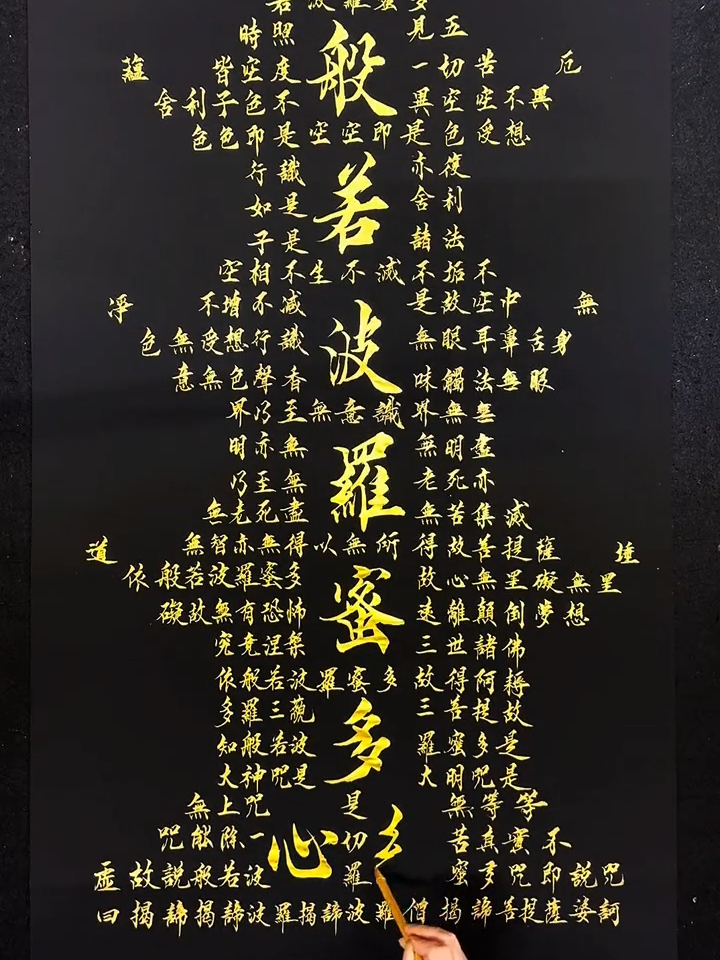 若波羅蜜多
時照 見五
蘊 皆空度 一切苦 厄
般
舍利子色不 異空空不異
色色即是空空即是色受想
行識 亦復
如是 舍利
若
子是 諸法
空相不生不滅不垢不
淨 不增不減 是故空中 無
色無受想行識 無眼耳鼻舌身
波
意無色聲香 味觸法無眼
界乃至無意識界無無
明亦無 無明盡
乃至無 老死亦
羅
無老死盡 無苦集滅
道 無智亦無得以無所得故菩提薩 埵
依般若波羅蜜多 故心無罣礙無罣
礙故無有恐怖 遠離顛倒夢想
蜜
究竟涅槃 三世諸佛
依般若波羅蜜多故得阿耨
多羅三藐 三菩提故
知般若波 羅蜜多是
多
大神咒是 大明咒是
無上咒 是 無等等
咒能除一 切 苦真實不
心
虛故說般若波 羅 蜜多咒即說咒
曰揭諦揭諦波羅揭諦波羅僧揭諦菩提薩婆訶